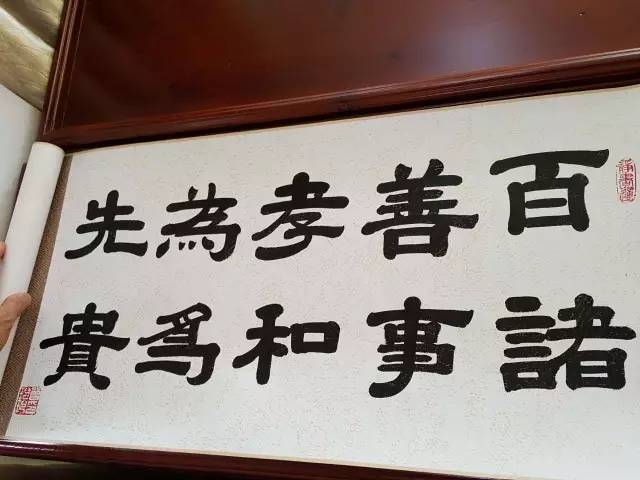 百善孝為先
諸事和爲貴